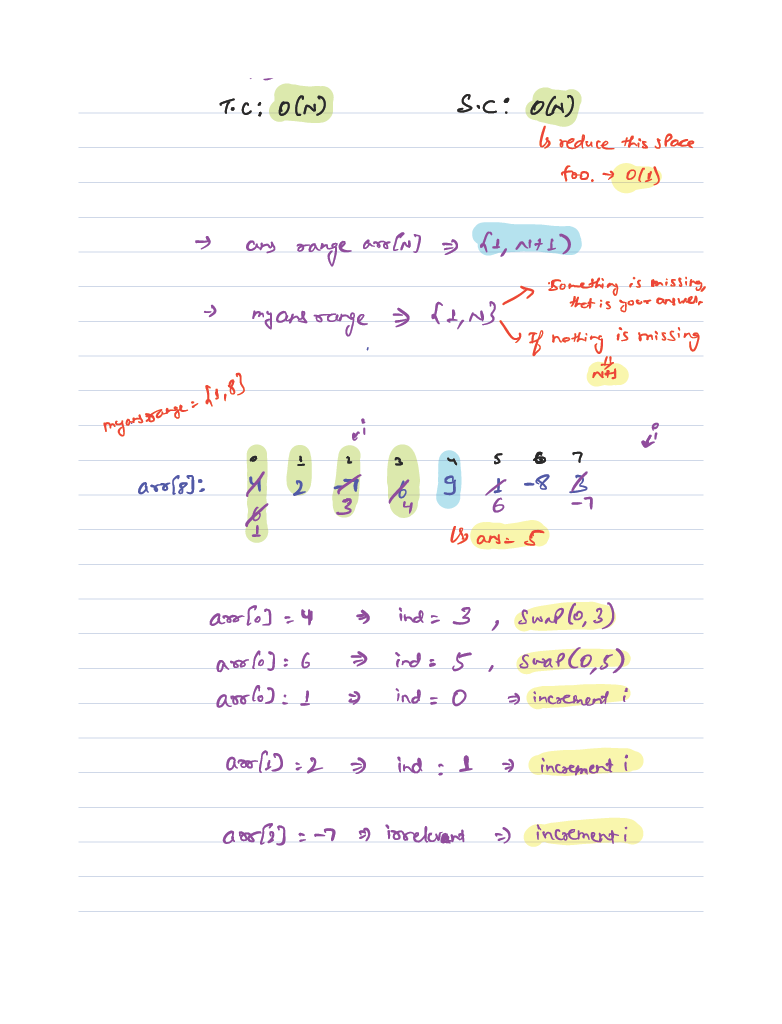 T.C: O(N) S.C: O(N)
↳ reduce this space
too. → O(1)
→ ans range arr[N] ⇒ [1, N+1]
→ my ans range ⇒ {1, N}
Something is missing,
that is your answer.
If nothing is missing
⇓
N+1
my ans range = {1, 8}
i i
0 1 2 3 4 5 6 7
arr[8]: 4 2 -7 6 9 1 -8 3
6 3 4 6 -7
1
↳ ans = 5
arr[0] = 4 ⇒ ind = 3 , swap(0, 3)
arr[0] = 6 ⇒ ind = 5 , swap(0, 5)
arr[0] = 1 ⇒ ind = 0 ⇒ increment i
arr[1] = 2 ⇒ ind = 1 ⇒ increment i
arr[2] = -7 ⇒ irrelevant ⇒ increment i